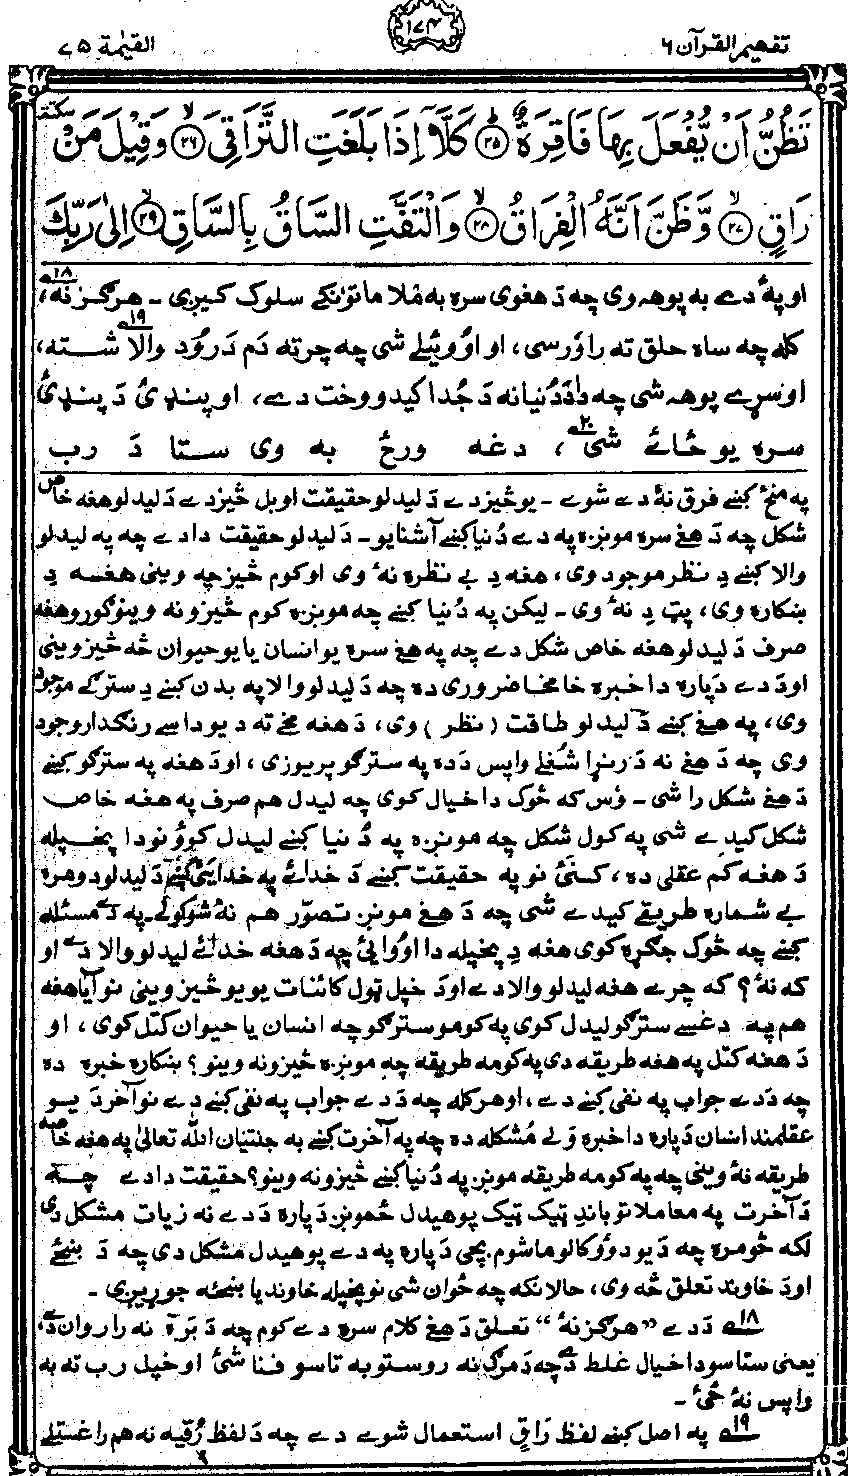 تفهیم القرآن ۶
۱۷۴
القیٰمة ۷۵
تَظُنُّ اَنْ یُّفْعَلَ بِهَا فَاقِرَةٌ ﴿۲۵﴾ کَلَّاۤ اِذَا بَلَغَتِ التَّرَاقِیَ ﴿۲۶﴾ وَقِیْلَ مَنْ سکتة
رَاقٍ ﴿۲۷﴾ وَّظَنَّ اَنَّهُ الْفِرَاقُ ﴿۲۸﴾ وَالْتَفَّتِ السَّاقُ بِالسَّاقِ ﴿۲۹﴾ اِلٰی رَبِّكَ
او پهٔ دے به پوهه وی چه دَ هغوی سره به مُلا ماتوُنکے سلوک کیږی - هرګز نه ۱۸،
کله چه ساه حلق ته راوُرسی، او اوُوئیلے شی چه چرته دَم دَرُود والا ۱۹ شته،
او سړے پوهه شی چه دا دَ دُنیا نه دَ جُدا کیدو وخت دے، او پنډئ دَ پنډئ
سره یو ځائے شی ۲۰، دغه ورځ به وی ستا دَ رب
په منځ کښے فرق نهٔ دے شوے - یو څیز دے دَ لیدلو حقیقت او بل څیز دے دَ لیدلو هغه خاص
شکل چه دَ هغے سره مونږه په دے دُنیا کښے آشنا یو - دَ لیدلو حقیقت دا دے چه په لیدلو
والا کښے دِ نظر موجود وی، هغه دِ بے نظره نهٔ وی او کوم څیز چه وینی هغه دِ
ښکاره وی، پټ دِ نهٔ وی - لیکن په دُنیا کښے چه مونږه کوم څیزونه وینو ګورو هغه
صرف دَ لیدلو هغه خاص شکل دے چه په هغے سره یو انسان یا یو حیوان څه څیز وینی
او دَ دے دَپاره دا خبره خامخا ضروری ده چه دَ لیدلو والا په بدن کښے دِ سترګے موجود
وی، په هغے کښے دَ لیدلو طاقت (نظر) وی، دَ هغه مخے ته دِ یو داسے رنګدار وجود
وی چه دَ هغے نه دَ رنړا شُغلے واپس دَ ده په سترګو پریوزی، او دَ هغه په سترګو کښے
دَ هغے شکل را شی - وُس که څوک دا خیال کوی چه لیدل هم صرف په هغه خاص
شکل کیدے شی په کول شکل چه مونږه په دُنیا کښے لیدل کوؤ نو دا پخپله
دَ هغه کم عقلی ده، کنی نو په حقیقت کښے دَ خدائے په خدایئ کښے دَ لیدلو دومره
بے شماره طریقے کیدے شی چه دَ هغے مونږ تصوّر هم نهٔ شو کولے. په دے مسئله
کښے چه څوک جګړه کوی هغه دِ پخپله دا اوُوائی چه دَ هغه خدائے لیدلو والا دے او
که نهٔ؟ که چرے هغه لیدلو والا دے او دَ خپل ټول کائنات یو یو څیز وینی نو آیا هغه
هم په دغسے سترګو لیدل کوی په کومو سترګو چه انسان یا حیوان کتل کوی، او
دَ هغه کتل په هغه طریقه دی په کومه طریقه چه مونږه څیزونه وینو؟ ښکاره خبره ده
چه دَ دے جواب په نفی کښے دے، او هر کله چه دَ دے جواب په نفی کښے دے نو آخر دَ یو
عقلمند انسان دَپاره دا خبره ولے مُشکله ده چه په آخرت کښے به جنتیان الله تعالیٰ په هغه خاصه
طریقه نهٔ وینی چه په کومه طریقه مونږ په دُنیا کښے څیزونه وینو؟ حقیقت دا دے چه
دَ آخرت په معاملاتو باندِ ټیک ټیک پوهیدل څمونږ دَپاره دَ دے نه زیات مشکل دی
لکه څومره چه دَ یو دوؤ کالو ماشوم بچی دَپاره په دے پوهیدل مشکل دی چه دَ ښځے
او دَ خاوند تعلق څه وی، حالانکه چه ځوان شی نو پخپله خاوند یا ښځه جوړیږی -
۱۸ دَ دے "هرګز نهٔ" تعلق دَ هغے کلام سره دے کوم چه دَ بره نه را روان دے،
یعنی ستاسو دا خیال غلط دے چه دَ مرګ نه روستو به تاسو فنا شئ او خپل رب ته به
واپس نهٔ ځئ -
۱۹ په اصل کښے لفظ رَاقٍ استعمال شوے دے چه دَ لفظ رُقیه نه هم راغستلے